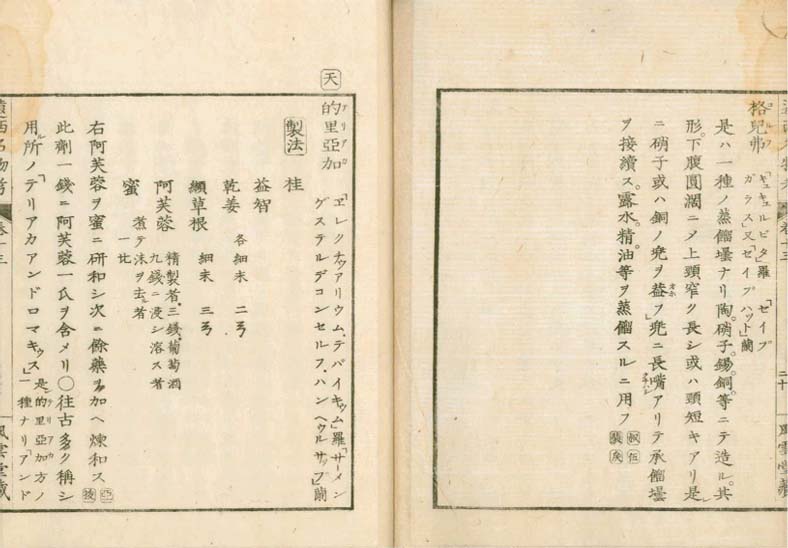 格兒弗
コルフ
「キュキュルビタ」羅 「ゼイブ
ガラス」又「ゼイブハット」蘭
是ハ一種ノ蒸餾壜ナリ陶。硝子。錫。銅。等ニテ造ル。其
形。下腹圓濶ニメ上頸窄ク長シ或ハ頸短キアリ是
ニ硝子或ハ銅ノ兠ヲ葢ヲ」兠ニ長嘴アリテ承餾壜
ヲ接續ス。露水。精。油等ヲ蒸餾スルニ用フ
遠西名物考
卷十三
二十
風雲堂藏
天
的里亞加
テリアカ
「ヱレクチュアリウム、テパイキュム」羅「サーメン
ゲステルデコンセルフ、ハン、ヘウルサップ」蘭
製法
桂
益智
乾姜 各細末 二弓
纈草根 細末 三弓
阿芙蓉 精製者。三錢、葡萄酒
九錢ニ浸シ溶ス者
蜜 煮テ沫ヲ去ル者
一比
右阿芙蓉ヲ蜜ニ研和シ次ニ餘藥ヲ加ヘ煉和ス
此劑一錢ニ阿芙蓉一瓜ヲ含メリ○往古多ク稱シ
用ル所ノ「テリアカアンドロマキュス」
是的里亞加方ノ
一種ナリ「アンド
遠西名物考
卷十三
風雲堂藏